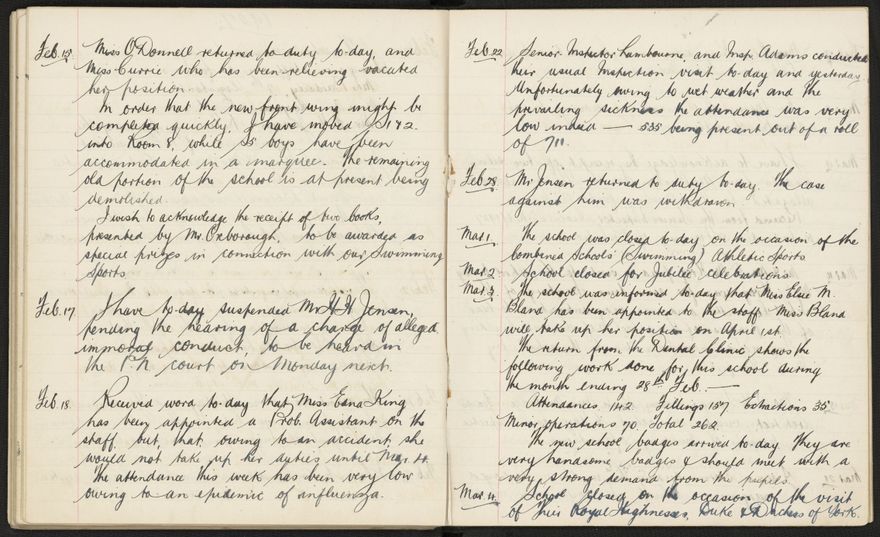 Feb. 15. Miss O'Donnell returned to duty to-day, and
Miss Currie who has been relieving vacated
her position.
In order that the new front wing might be
completed quickly, I have moved S 1 & 2.
into Room 8, while 55 boys have been
accommodated in a marquee. The remaining
old portion of the school is at present being
demolished.
I wish to acknowledge the receipt of two books,
presented by Mr. Oxborough, to be awarded as
special prizes in connection with our Swimming
Sports
Feb. 17 I have to-day suspended Mr H. H. Jensen,
pending the hearing of a charge of alleged
immoral conduct, to be heard in
the P.N. court on Monday next.
Feb. 18. Received word to-day that Miss Edna King
has been appointed a Prob. Assistant on the
staff, but, that owing to an accident, she
would not take up her duties until Mar.
The attendance this week has been very low
owing to an epidemic of influenza.
Feb. 22 Senior Inspector Lambourne, and Insp. Adams conducted
their usual Inspection visit to-day and yesterday.
Unfortunately owing to wet weather and the
prevailing sickness the attendance was very
low indeed — 535 being present out of a roll
of 711.
Feb. 28. Mr Jensen returned to duty to-day. The case
against him was withdrawn.
Mar. 1. The school was closed to-day on the occasion of the
Combined Schools' (Swimming) Athletic Sports
Mar. 2 School closed for Jubilee celebrations
Mar. 3 The school was informed to-day that Miss Elsie M.
Bland has been appointed to the staff. Miss Bland
will take up her position on April 1st.
The return from the Dental Clinic shows the
following work done for this school during
the month ending 28th Feb. —
Attendances 142 Fillings 157 Extractions 35
Minor operations 70. Total 262.
The new school badges arrived to-day. They are
very handsome badges & should meet with a
very strong demand from the pupils.
Mar. 4. School closed on the occasion of the visit
of Their Royal Highnesses, Duke & Duchess of York.